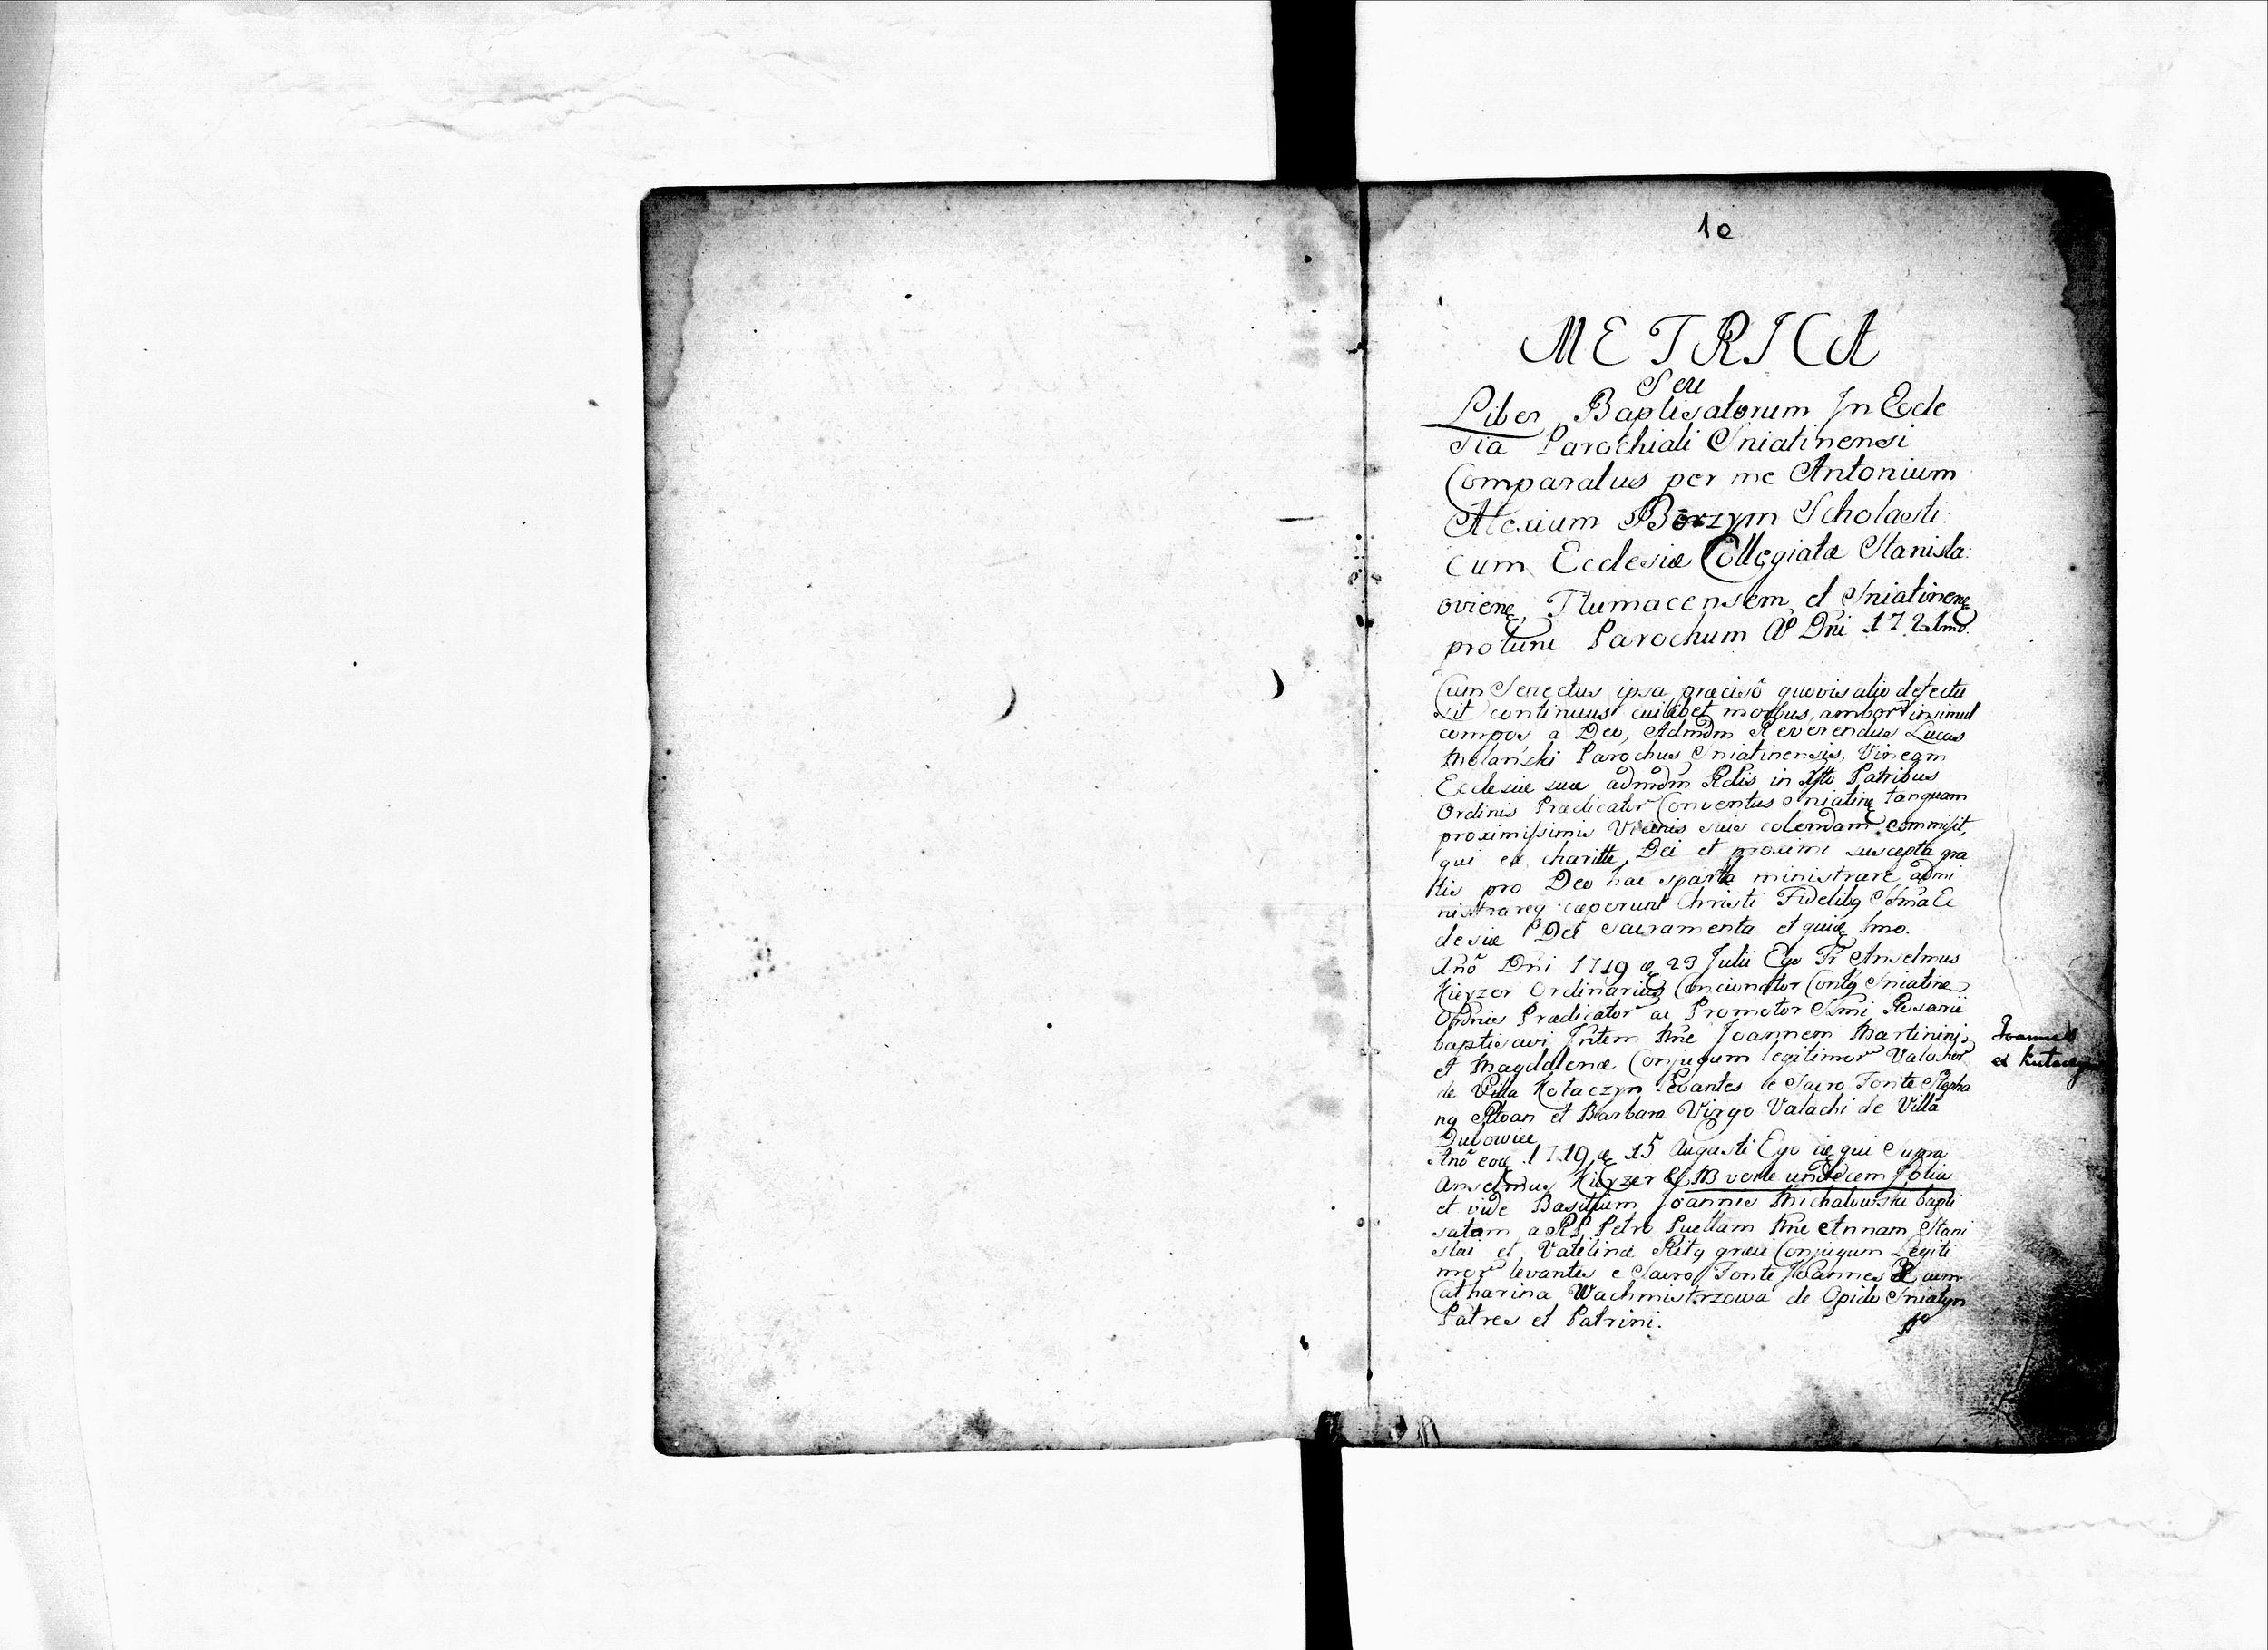 10
METRICA
Seu
Liber Baptisatorum In Eccle
sia Parochiali Sniatinensi
Comparatus per me Antonium
Alexium Borzym Scholasti:
cum Ecclesiæ Collegiatæ Stanisla:
oviens, Tlumacensem, et Sniatinens
protunc Parochum Ao Dni 1721mo.
Cum Senectus ipsa præcisô quovis alio defectu
sit continuus cuilibet morbus, ambor insimul
compos a Deo, Admdm Reverendus Lucas
Melański Parochus Sniatinensis, Vineam
Ecclesiæ suæ admdm Rdis in Xsto Patribus
Ordinis Prædicator Conventus Sniatin tanquam
proximissimis Vicinis suis colendam commisit,
qui ex charitte Dei et proximi suscepta gra
tis pro Deo hac sparta ministrare, admi
nistrareq cæperunt Christi Fidelibq Ec
clesiæ Dei Sacramenta et 1mo.
Anõ Dni 1719 23 Julii Ego Fr Anselmus
Kieyzer Ordinarius Concionator Contq Sniatine
Ordnis Prædicator ac Promotor Ssmi Rosarii
baptisavi Intem Nne Joannem Martinini
et Magdalenæ Conjugum legitimor Valachor
de Villa Kotaczyn Levantes e Sacro Fonte Stepha
nq et Barbara Virgo Valachi de Villa
Anõ eod 1719 15 Augusti Ego qui Supra
Anselmus Kieyzer NB verte undecem folia
et vide Basilium Joannis Michalowski bapti
satam a RP Petro Puellam Nne Annam Stani
slai et Vatelinæ Ritq græci Conjugum Legiti
mor levantes e Sacro Fonte Joannes cum
Catharina Wachmistrzowa de Opido Sniatyn
Patres et Patrini.
Joannes